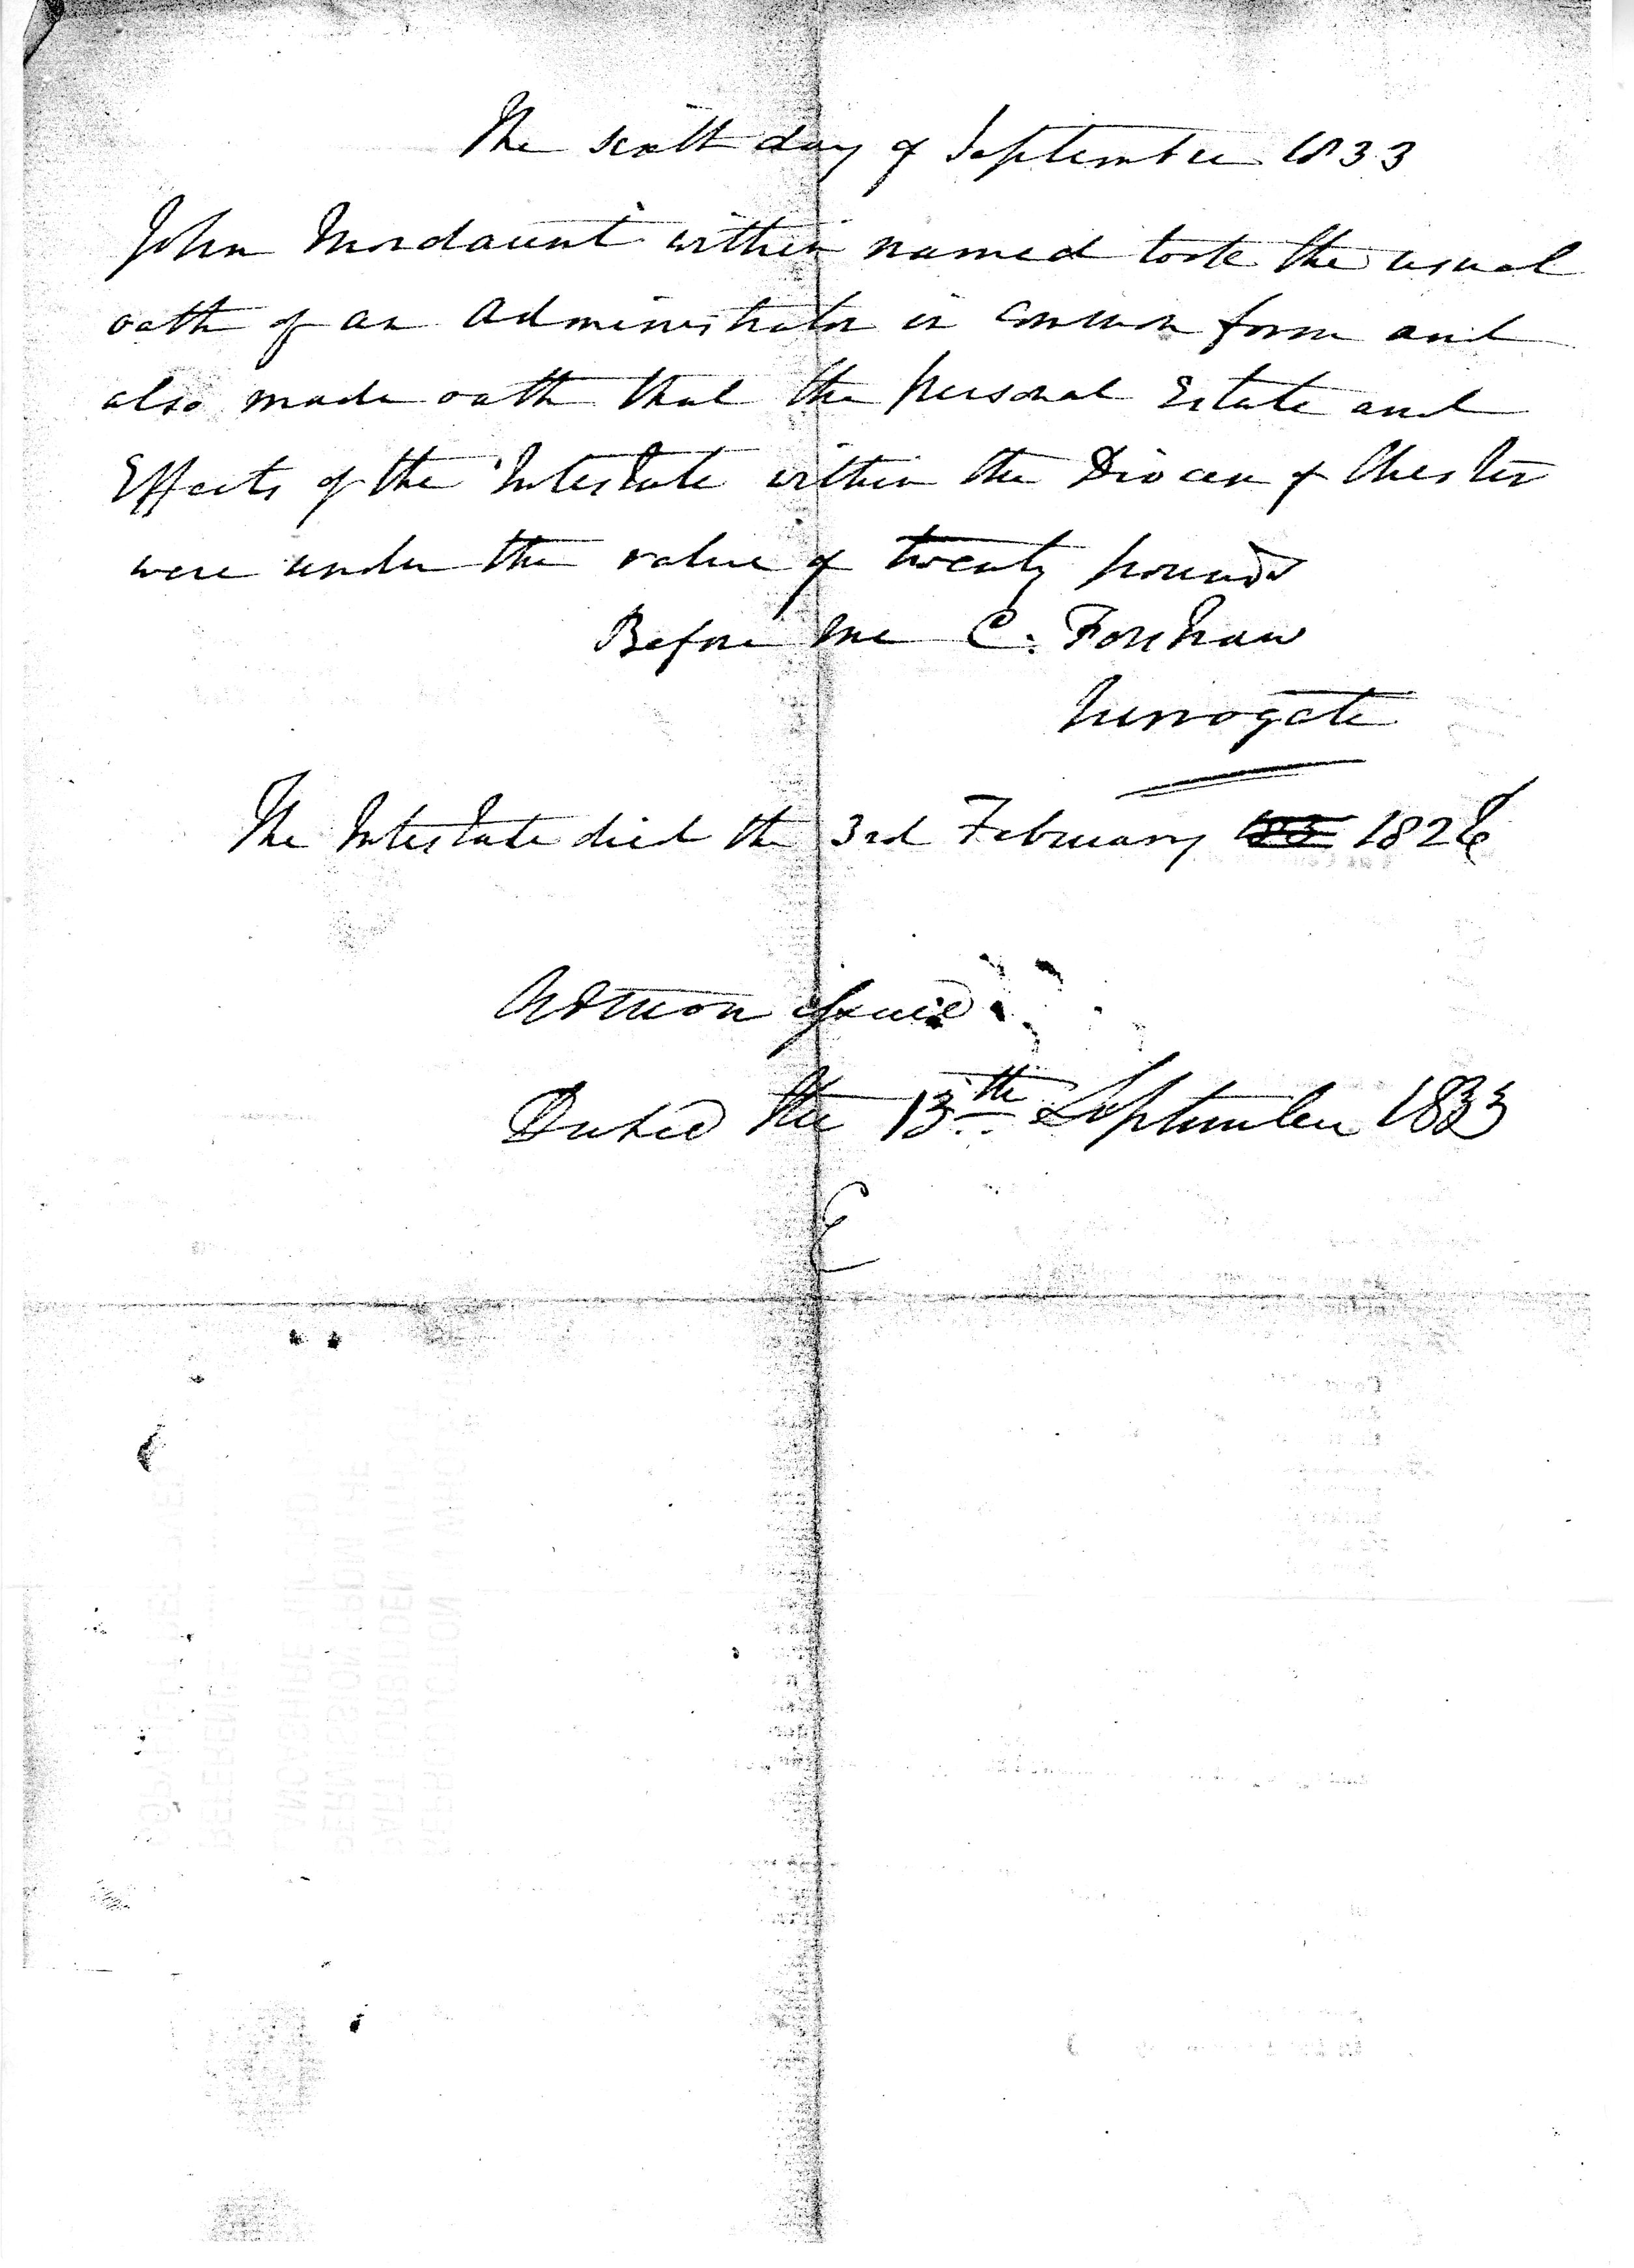 The sixth day of September 1833
John Mordaunt within named took the usual
oath of an Administrator in common form and
also made oath that the personal Estate and
Effects of the Intestate within the Diocese of Chester
were under the value of twenty pounds
Before me C. Forshaw
Surrogate
The Intestate died the 3rd February 183 1826
Admon issued
Dated the 13th September 1833